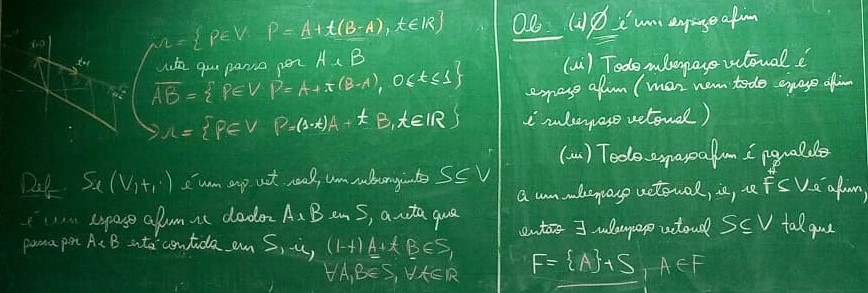 r = { P∈V P = A + t(B-A), t∈IR}
reta que passa por A e B
AB = { P∈V P = A + t(B-A), 0≤t≤1}
r = { P∈V P=(1-t)A + t B, t∈IR}
Def. Se (V,+,·) é um esp. vet. real, um subconjunto S⊆V
é um espaço afim se dados A e B em S, a reta que
passa por A e B está contida em S, ie, (1-t)A + t B∈S,
∀A,B∈S, ∀t∈IR
Ob. (i) ∅ é um espaço afim
(ii) Todo subespaço vetorial é
espaço afim (mas nem todo espaço afim
é subespaço vetorial)
(iii) Todo espaço afim é paralelo
a um subespaço vetorial, ie, se F ⊆ V é afim,
então ∃ subespaço vetorial S⊆V tal que
F = {A} + S, A∈F